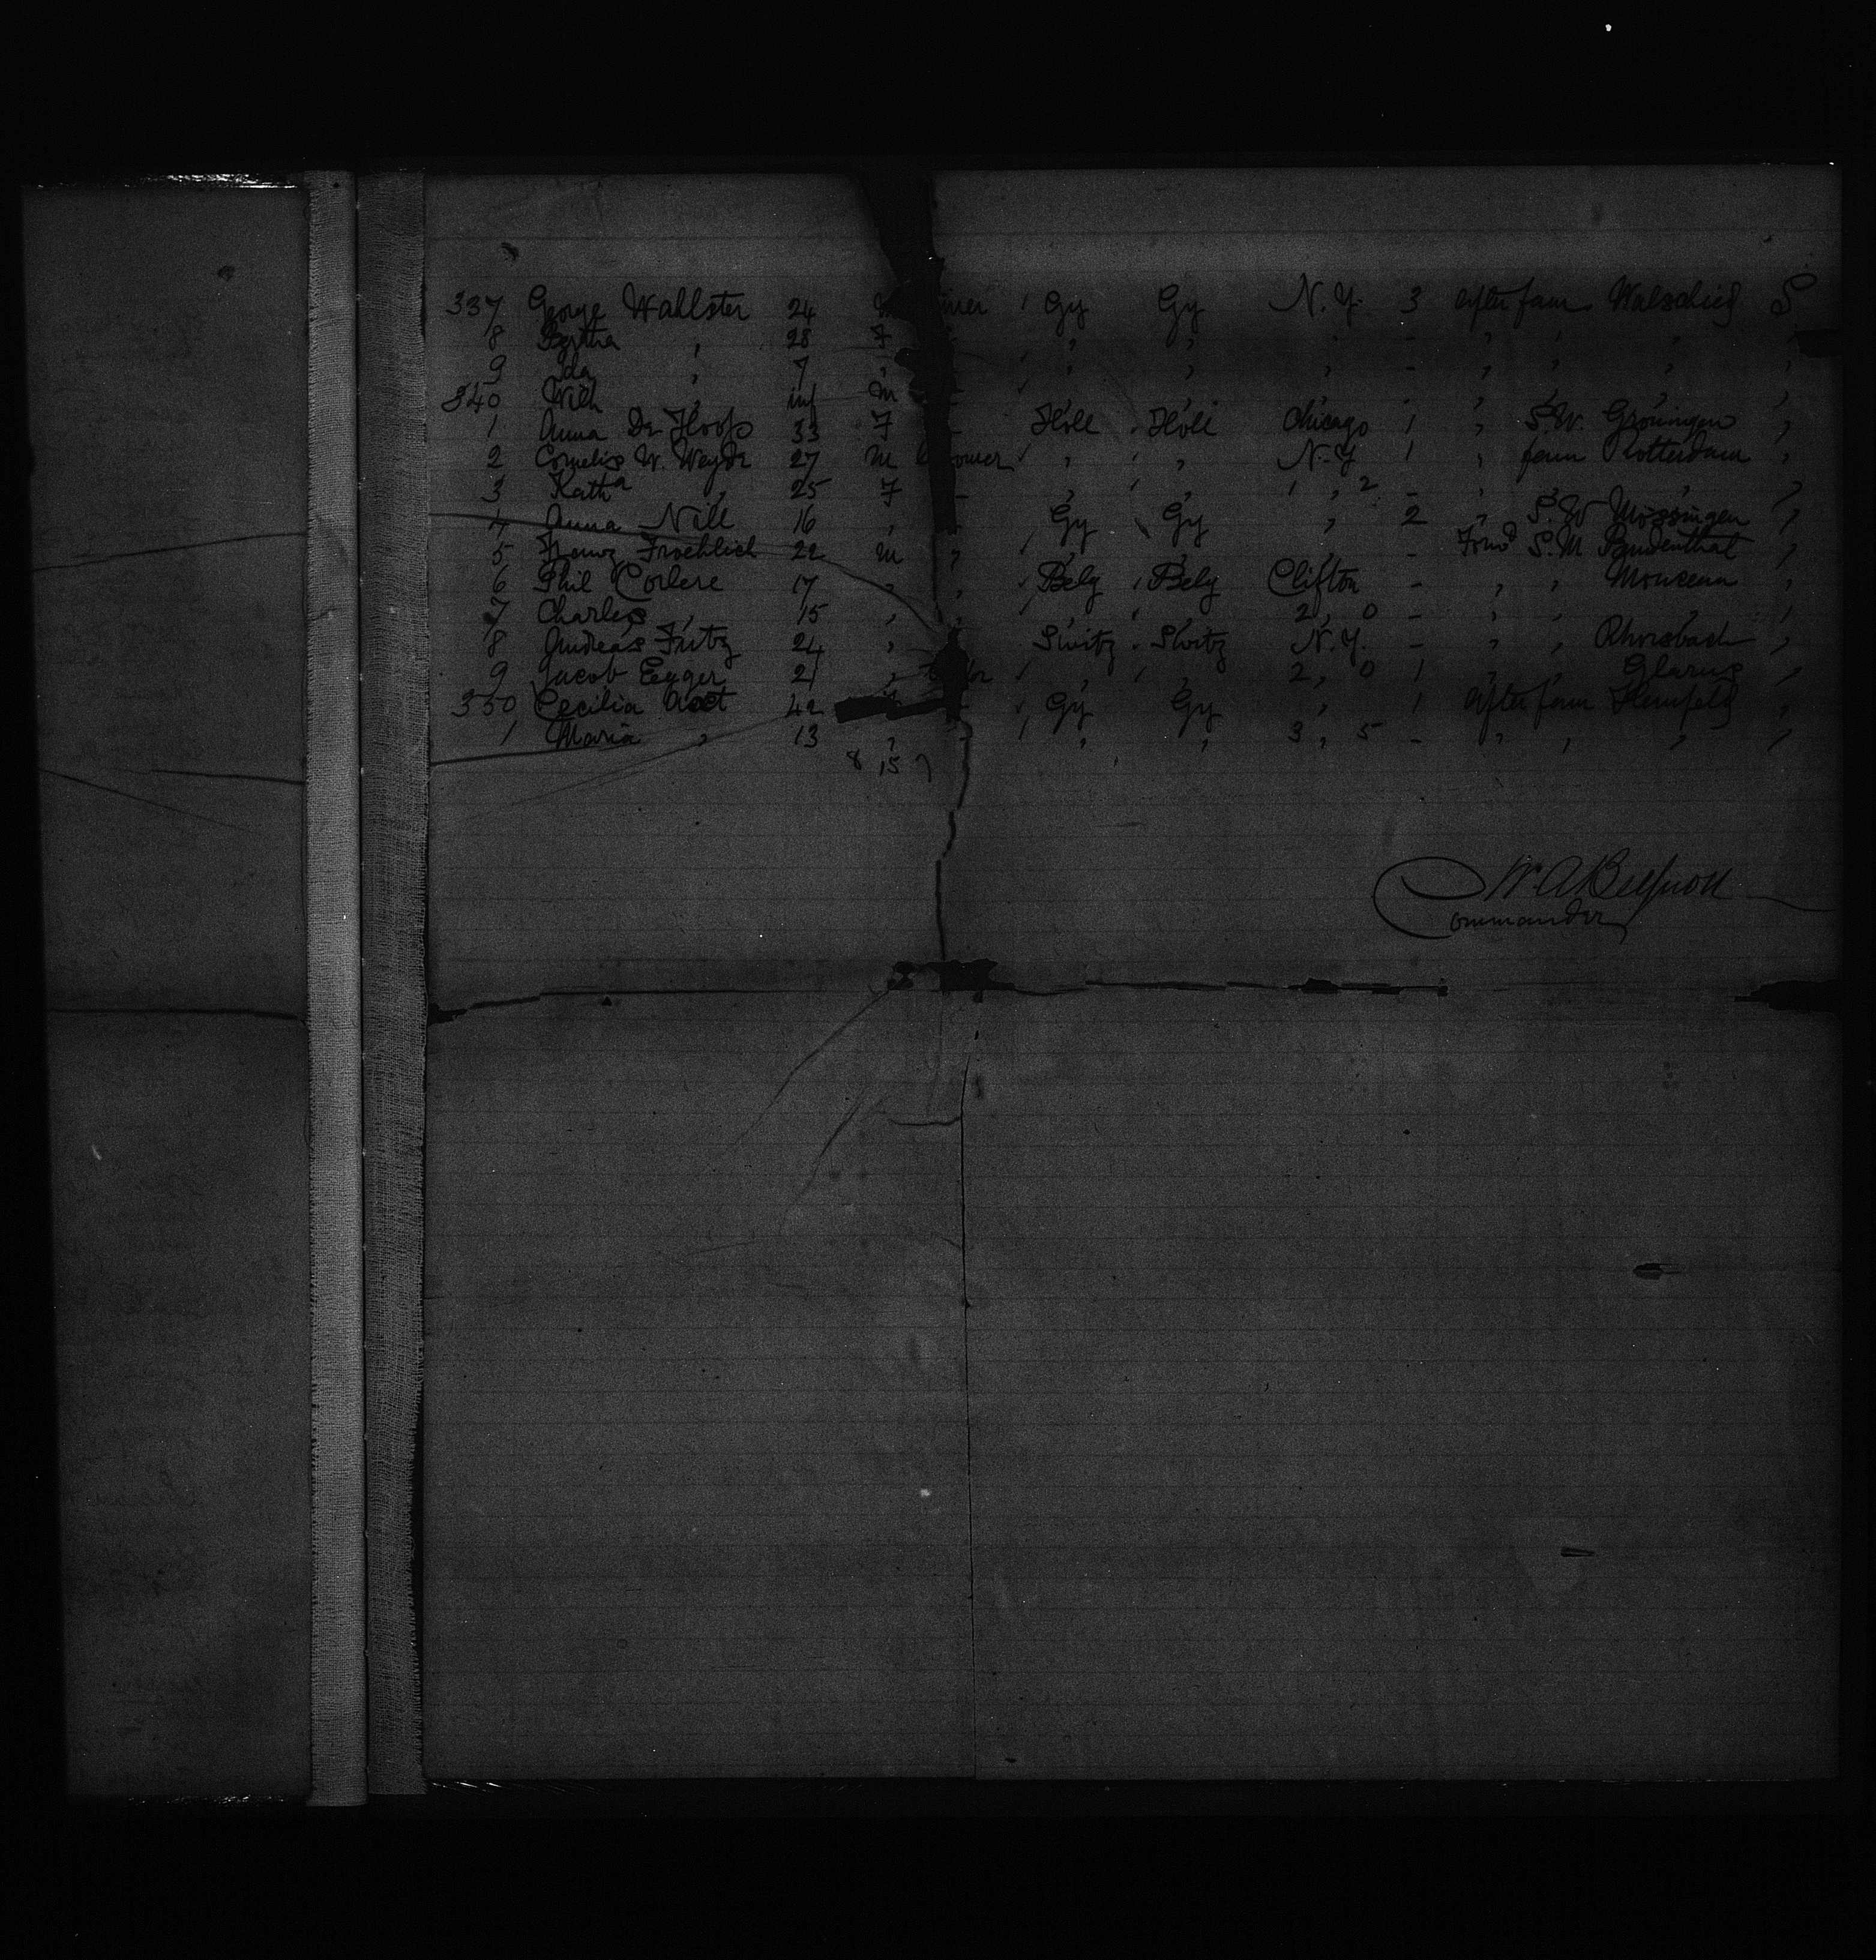 337 George Wahlster 24 M Gy Gy N.Y. 3 after fam Walschied S
8 Bertha " 28 F - " " " - " " " "
9 Ida " 7 " - " " " - " " " "
340 Wilh " inf M - " " " - " " " "
1 Anna De Hoop 33 F - Holl Holl Chicago 1 " S.W. Groningen "
2 Cornelis W. Weyde 27 M " " N.Y 1 " fam Rotterdam "
3 Kath a " 25 F - " " 1, 2 - " " " "
4 Anna Nill 16 " - Gy Gy " 2 " S.W Mössingen "
5 Franz Froehlich 22 M " " " " - S.M "
6 Phil Corbere 17 " " Belg Belg Clifton - " "
7 Charles " 15 " " " " 2, 0 - " " " "
8 Andreas Fritz 24 " Switz Switz N.Y. - " " "
9 Jacob Egger 21 " " " 2, 0 1 " " Glarus "
350 Cecilia 42 - Gy Gy " 1 After fam "
1 Maria " 13 " - " " 3, 5 - " " " "
8 15 7
Commander